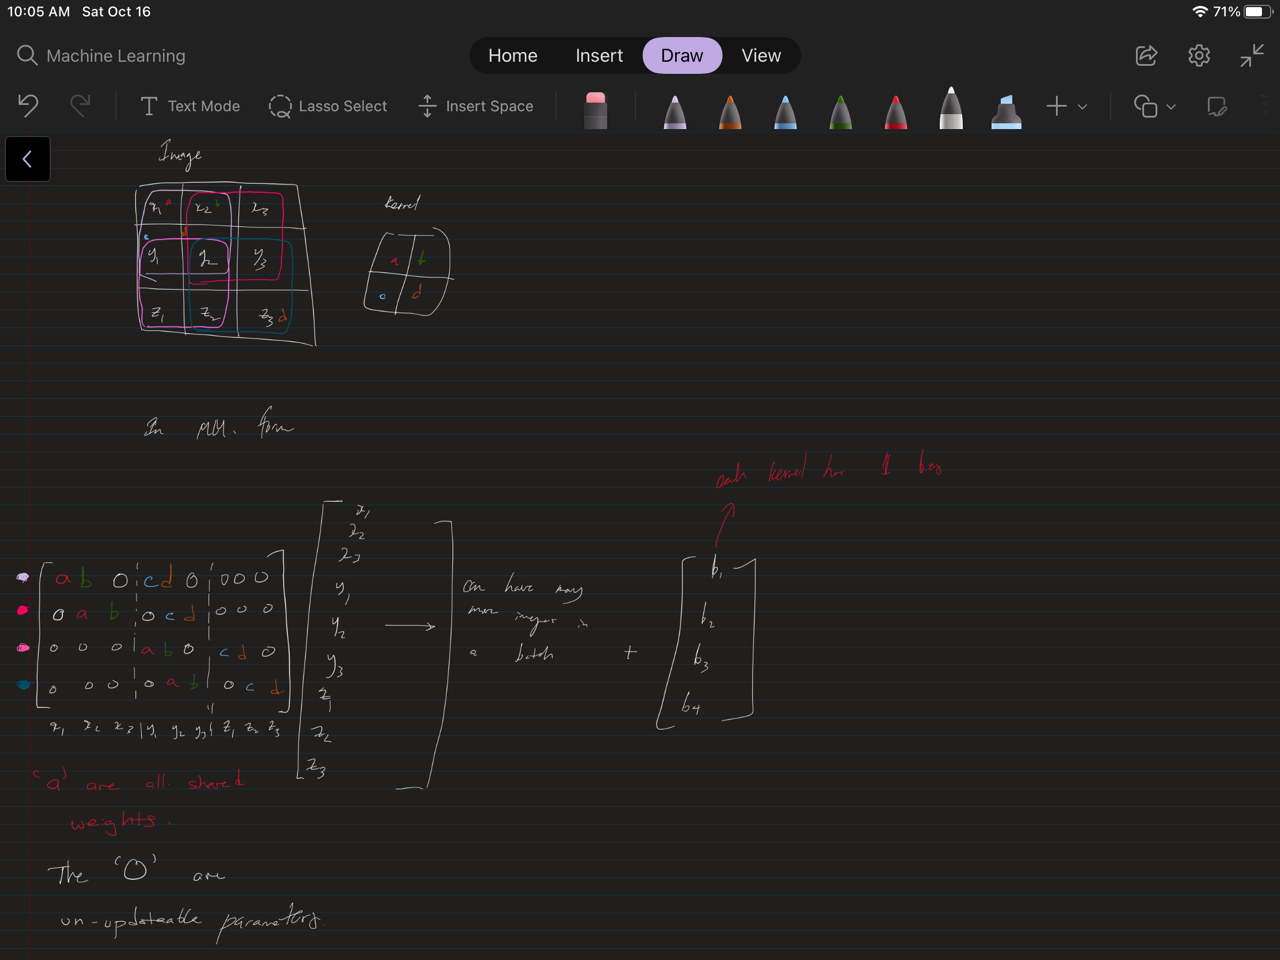 10:05 AM Sat Oct 16
71%
Machine Learning
Home Insert Draw View
Text Mode Lasso Select Insert Space
Image
x1 a x2 b x3
c d
y1 y2 y3
z1 z2 z3 d
Kernel
a b
c d
In MM. form
each kernel has 1 bias
x1
x2
x3
y1
y2
y3
z1
z2
z3
a b 0 c d 0 0 0 0
0 a b 0 c d 0 0 0
0 0 0 a b 0 c d 0
0 0 0 0 a b 0 c d
x1 x2 x3 y1 y2 y3 z1 z2 z3
can have many
more images in
a batch
+
b1
b2
b3
b4
'a' are all shared
weights.
The '0' are
un-updateable parameters.